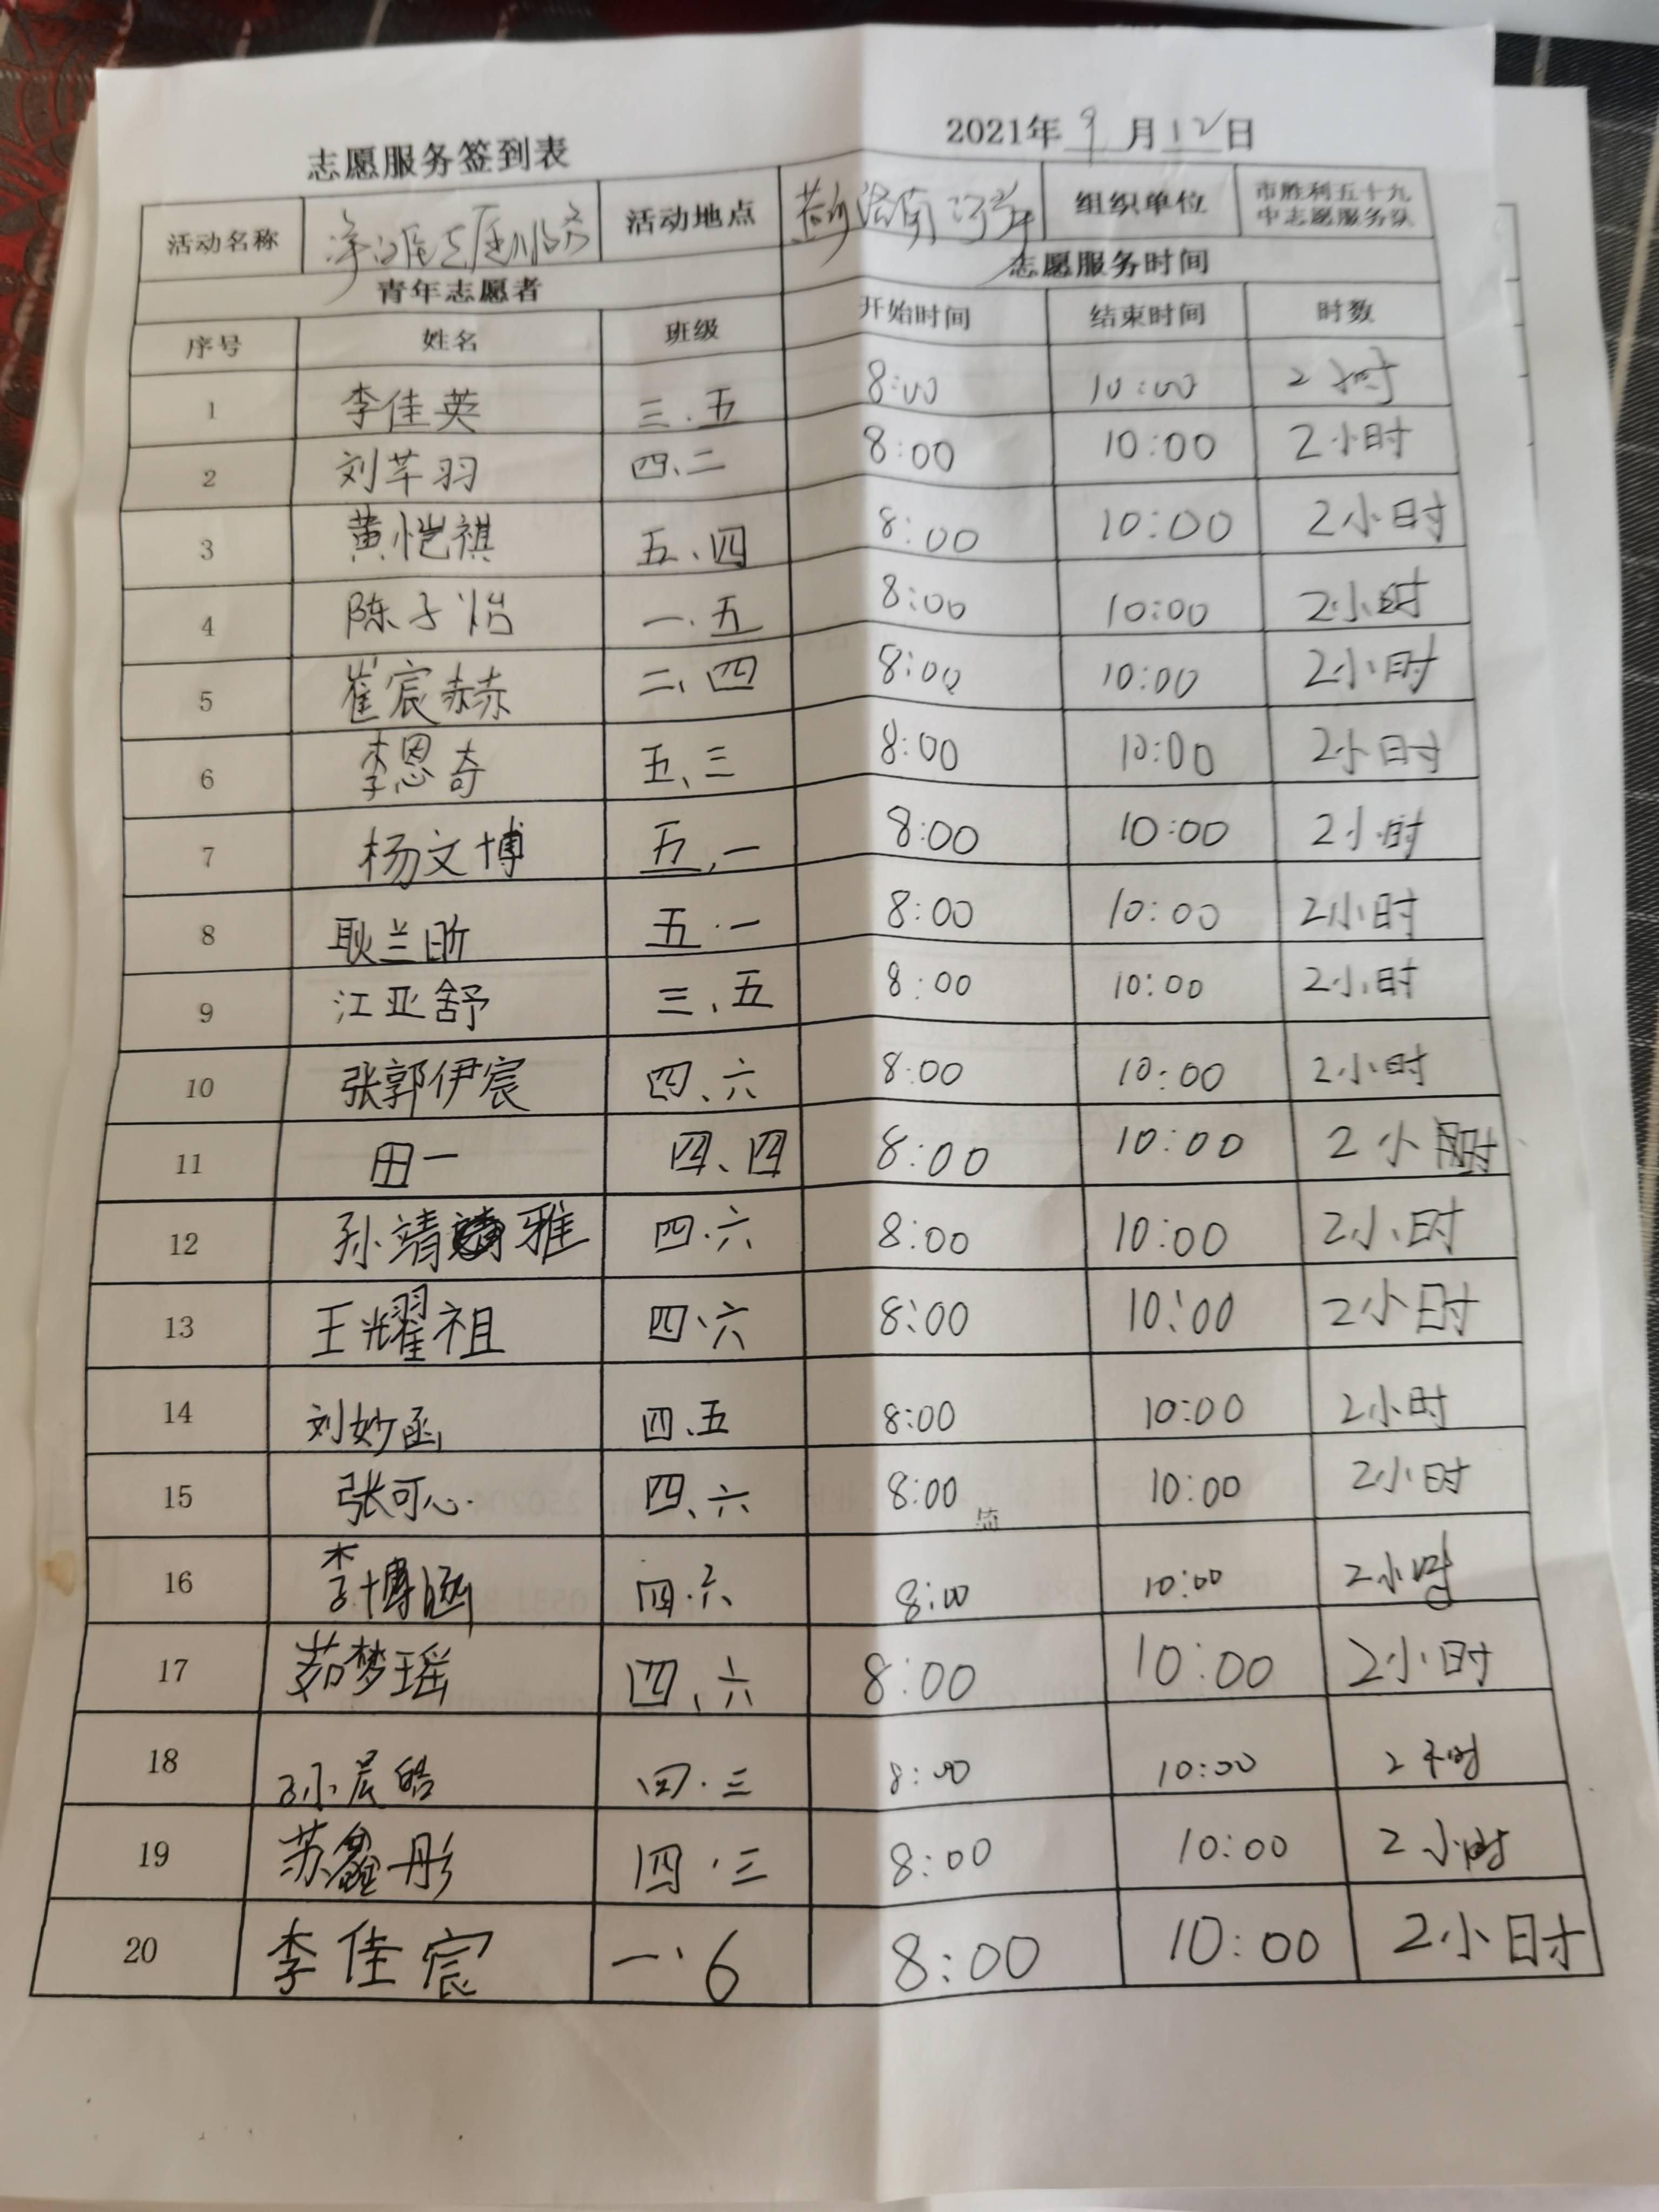 志愿服务签到表 2021年9月12日
活动名称 活动地点 组织单位 市胜利五十九中志愿服务队
青年志愿者 志愿服务时间
序号 姓名 班级 开始时间 结束时间 时数
1 李佳英 三.五 8:00 10:00 2小时
2 刘芊羽 四、二 8:00 10:00 2小时
3 黄恺祺 五、四 8:00 10:00 2小时
4 陈子怡 一.五 8:00 10:00 2小时
5 崔宸赫 二、四 8:00 10:00 2小时
6 李恩奇 五、三 8:00 10:00 2小时
7 杨文博 五、一 8:00 10:00 2小时
8 耿兰昕 五.一 8:00 10:00 2小时
9 江亚舒 三、五 8:00 10:00 2小时
10 张郭伊宸 四、六 8:00 10:00 2小时
11 田一 四、四 8:00 10:00 2小时
12 孙靖雅 四.六 8:00 10:00 2小时
13 王耀祖 四、六 8:00 10:00 2小时
14 刘妙函 四.五 8:00 10:00 2小时
15 张可心 四、六 8:00 10:00 2小时
16 李博涵 四.六 8:00 10:00 2小时
17 茹梦瑶 四、六 8:00 10:00 2小时
18 孙晨皓 四.三 8:00 10:00 2小时
19 苏鑫彤 四.三 8:00 10:00 2小时
20 李佳宸 一、6 8:00 10:00 2小时